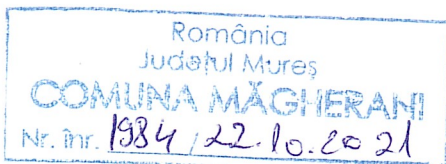 România
Județul Mureș
COMUNA MĂGHERANI
Nr. înr. 1984 / 22.10.2021